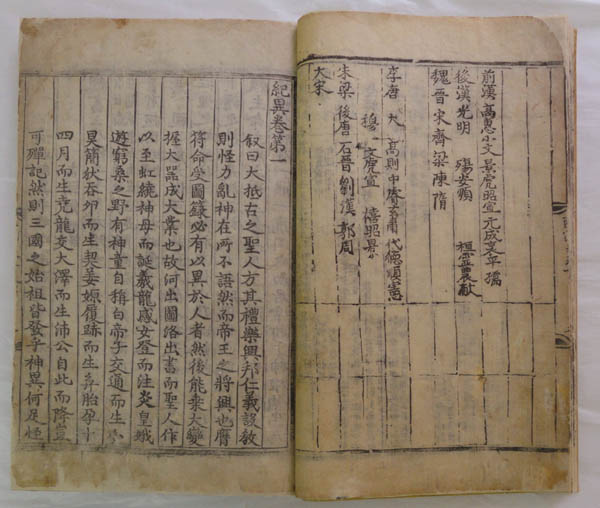 前漢 高惠小文景虎昭宣元成哀平孺
後漢光明 殤安順 桓靈農獻
魏晉宋齊梁陳隋
李唐 大 高則中睿玄肅代德順憲
穆 文虎宣 僖昭景
朱梁 後唐 石晉 劉漢 郭周
大宋
紀異卷第一
叙曰大抵古之聖人方其禮樂興邦仁義設敎
則怪力亂神在所不語然而帝王之將興也膺
符命受圖籙必有以異於人者然後能乘大變
握大器成大業也故河出圖洛出書而聖人作
以至虹繞神母而誕羲龍感女登而注炎皇娥
遊窮桑之野有神童自稱白帝子交通而生小
昊簡狄吞卵而生契姜嫄履跡而生弃胎孕十
四月而生堯龍交大澤而生沛公自此而降豈
可殫記然則三國之始祖皆發乎神異何足怪